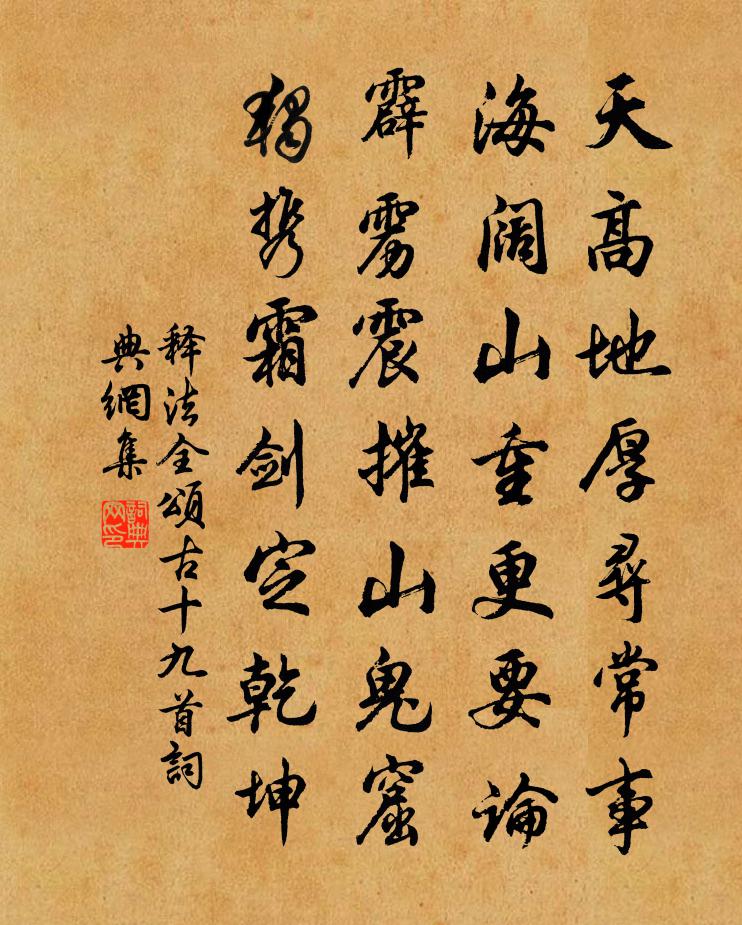 天高地厚尋常事
海阔山重更要論
霹雳震摧山鬼窟
独携霜剑定乾坤
释法全頌古十九首詞
典網集
詞典
网印